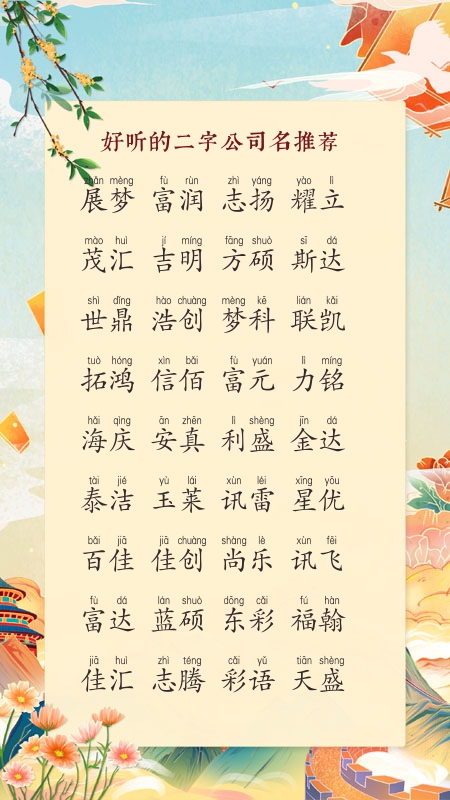 好听的二字公司名推荐
zhǎn mèng fù rùn zhì yáng yào lì
展梦 富润 志扬 耀立
mào huì jí míng fāng shuò sī dá
茂汇 吉明 方硕 斯达
shì dǐng hào chuàng mèng kē lián kǎi
世鼎 浩创 梦科 联凯
tuò hóng xìn bǎi fù yuán lì míng
拓鸿 信佰 富元 力铭
hǎi qìng ān zhēn lì shèng jīn dá
海庆 安真 利盛 金达
tài jié yù lái xùn léi xīng yōu
泰洁 玉莱 讯雷 星优
bǎi jiā jiā chuàng shàng lè xùn fēi
百佳 佳创 尚乐 讯飞
fù dá lán shuò dōng cǎi fú hàn
富达 蓝硕 东彩 福翰
jiā huì zhì téng cǎi yǔ tiān shèng
佳汇 志腾 彩语 天盛